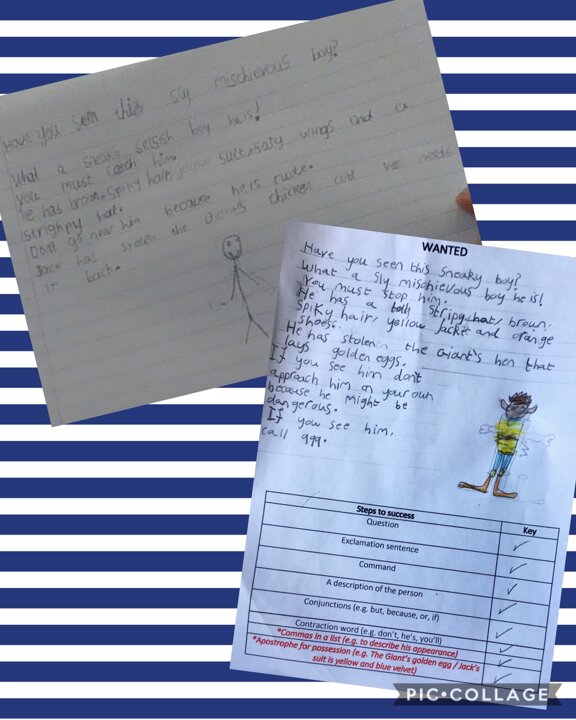 Have you seen this sly mischievous boy?
What a sneaky selfish boy he is!
you must catch him.
he has brown, spiky hair, yellow suit, saty wings and a
strighpy hat.
Dont go near him because he is rude.
Jack has stolen the chicken and he needs
it back.
WANTED
Have you seen this sneaky boy?
What a sly mischievous boy he is!
You must stop him.
He has a stripy hat, brown,
spiky hair, yellow jacket and orange
shoes.
He has stolen the Giant's hen that
lays golden eggs.
If you see him don't
approach him on your own
because he might be
dangerous.
If you see him,
call 999.
Steps to success Key
Question
Exclamation sentence
Command
A description of the person
Conjunctions (e.g. but, because, or, if)
Contraction word (e.g. don't, he's, you'll)
*Commas in a list (e.g. to describe his appearance)
*Apostrophe for possession (e.g. The Giant's golden egg / Jack's
suit is yellow and blue velvet)
PIC•COLLAGE